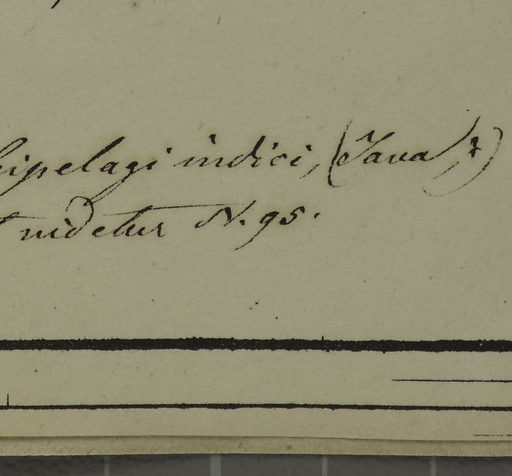 hipelagi indici, (Java,?)
t videtur N. 95.